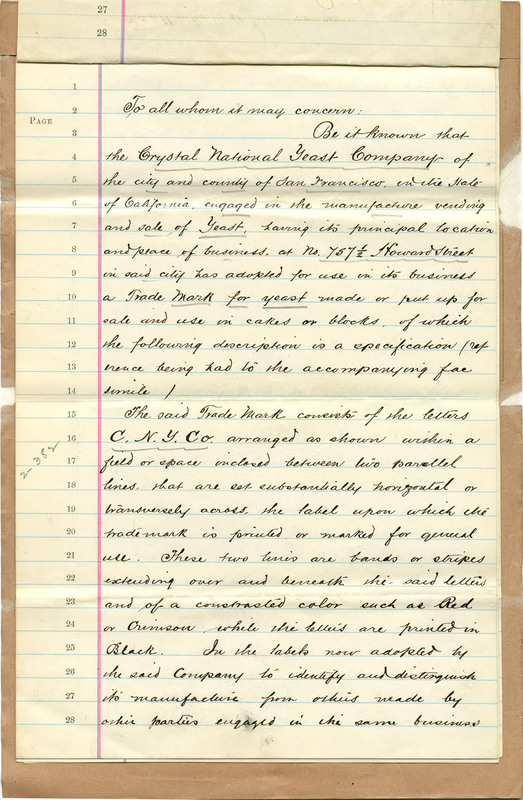 27
28
1
2 To all whom it may concern:
PAGE
3 Be it known that
4 the Crystal National Yeast Company of
5 the city and county of San Francisco, in the State
6 of California, engaged in the manufacture vending
7 and sale of Yeast, having its principal location
8 and place of business, at No. 757½ Howard Street
9 in said city has adopted for use in its business
10 a Trade Mark for yeast made or put up for
11 sale and use in cakes or blocks, of which
12 the following description is a specification (ref
13 erence being had to the accompanying fac
14 simile )
15 The said Trade Mark consists of the letters
16 C. N. Y. Co. arranged as shown within a
17 field or space inclosed between two parallel
18 lines, that are set substantially horizontal or
19 transversely across, the label upon which the
20 trade mark is printed or marked for general
21 use. These two lines are bands or stripes
22 extending over and beneath the said letters
23 and of a constrasted color such as Red
24 or Crimson, while the letters are printed in
25 Black. In the labels now adopted by
26 the said Company to identify and distinguish
27 its manufacture from others made by
28 other parties engaged in the same business
2382